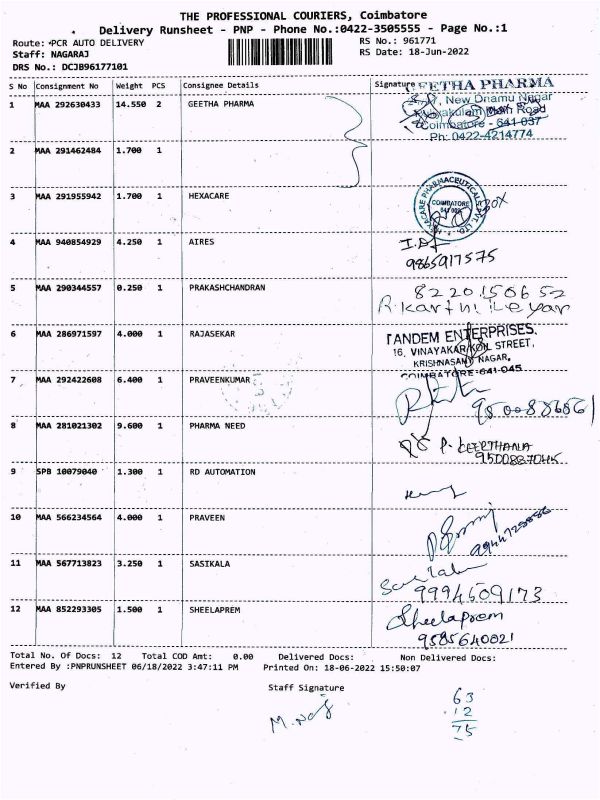 THE PROFESSIONAL COURIERS, Coimbatore
Delivery Runsheet - PNP - Phone No.:0422-3505555 - Page No.:1
Route: PCR AUTO DELIVERY RS No.: 961771
Staff: NAGARAJ RS Date: 18-Jun-2022
DRS No.: DCJB96177101
S No Consignment No Weight PCS Consignee Details Signature
1 MAA 292630433 14.550 2 GEETHA PHARMA
GEETHA PHARMA
New Nagar
Road
Coimbatore - 641 037
Ph: 0422-4214774
2 MAA 291462484 1.700 1
3 MAA 291955942 1.700 1 HEXACARE
COIMBATORE
4 MAA 940854929 4.250 1 AIRES
9865917575
5 MAA 290344557 0.250 1 PRAKASHCHANDRAN
8220150652
R. Karthikeyan
6 MAA 286971597 4.000 1 RAJASEKAR
TANDEM ENTERPRISES,
16, VINAYAKAR KOIL STREET,
KRISHNASAMY NAGAR,
COIMBATORE-641 045
7 MAA 292422608 6.400 1 PRAVEENKUMAR
8 MAA 281021302 9.600 1 PHARMA NEED
P. KEERTHANA
9500887045
9 SPB 10079040 1.300 1 RD AUTOMATION
10 MAA 566234564 4.000 1 PRAVEEN
11 MAA 567713823 3.250 1 SASIKALA
Sasikala
9994509173
12 MAA 852293305 1.500 1 SHEELAPREM
Sheelaprem
9585640021
Total No. Of Docs: 12 Total COD Amt: 0.00 Delivered Docs: Non Delivered Docs:
Entered By :PNPRUNSHEET 06/18/2022 3:47:11 PM Printed On: 18-06-2022 15:50:07
Verified By Staff Signature
63
12
75